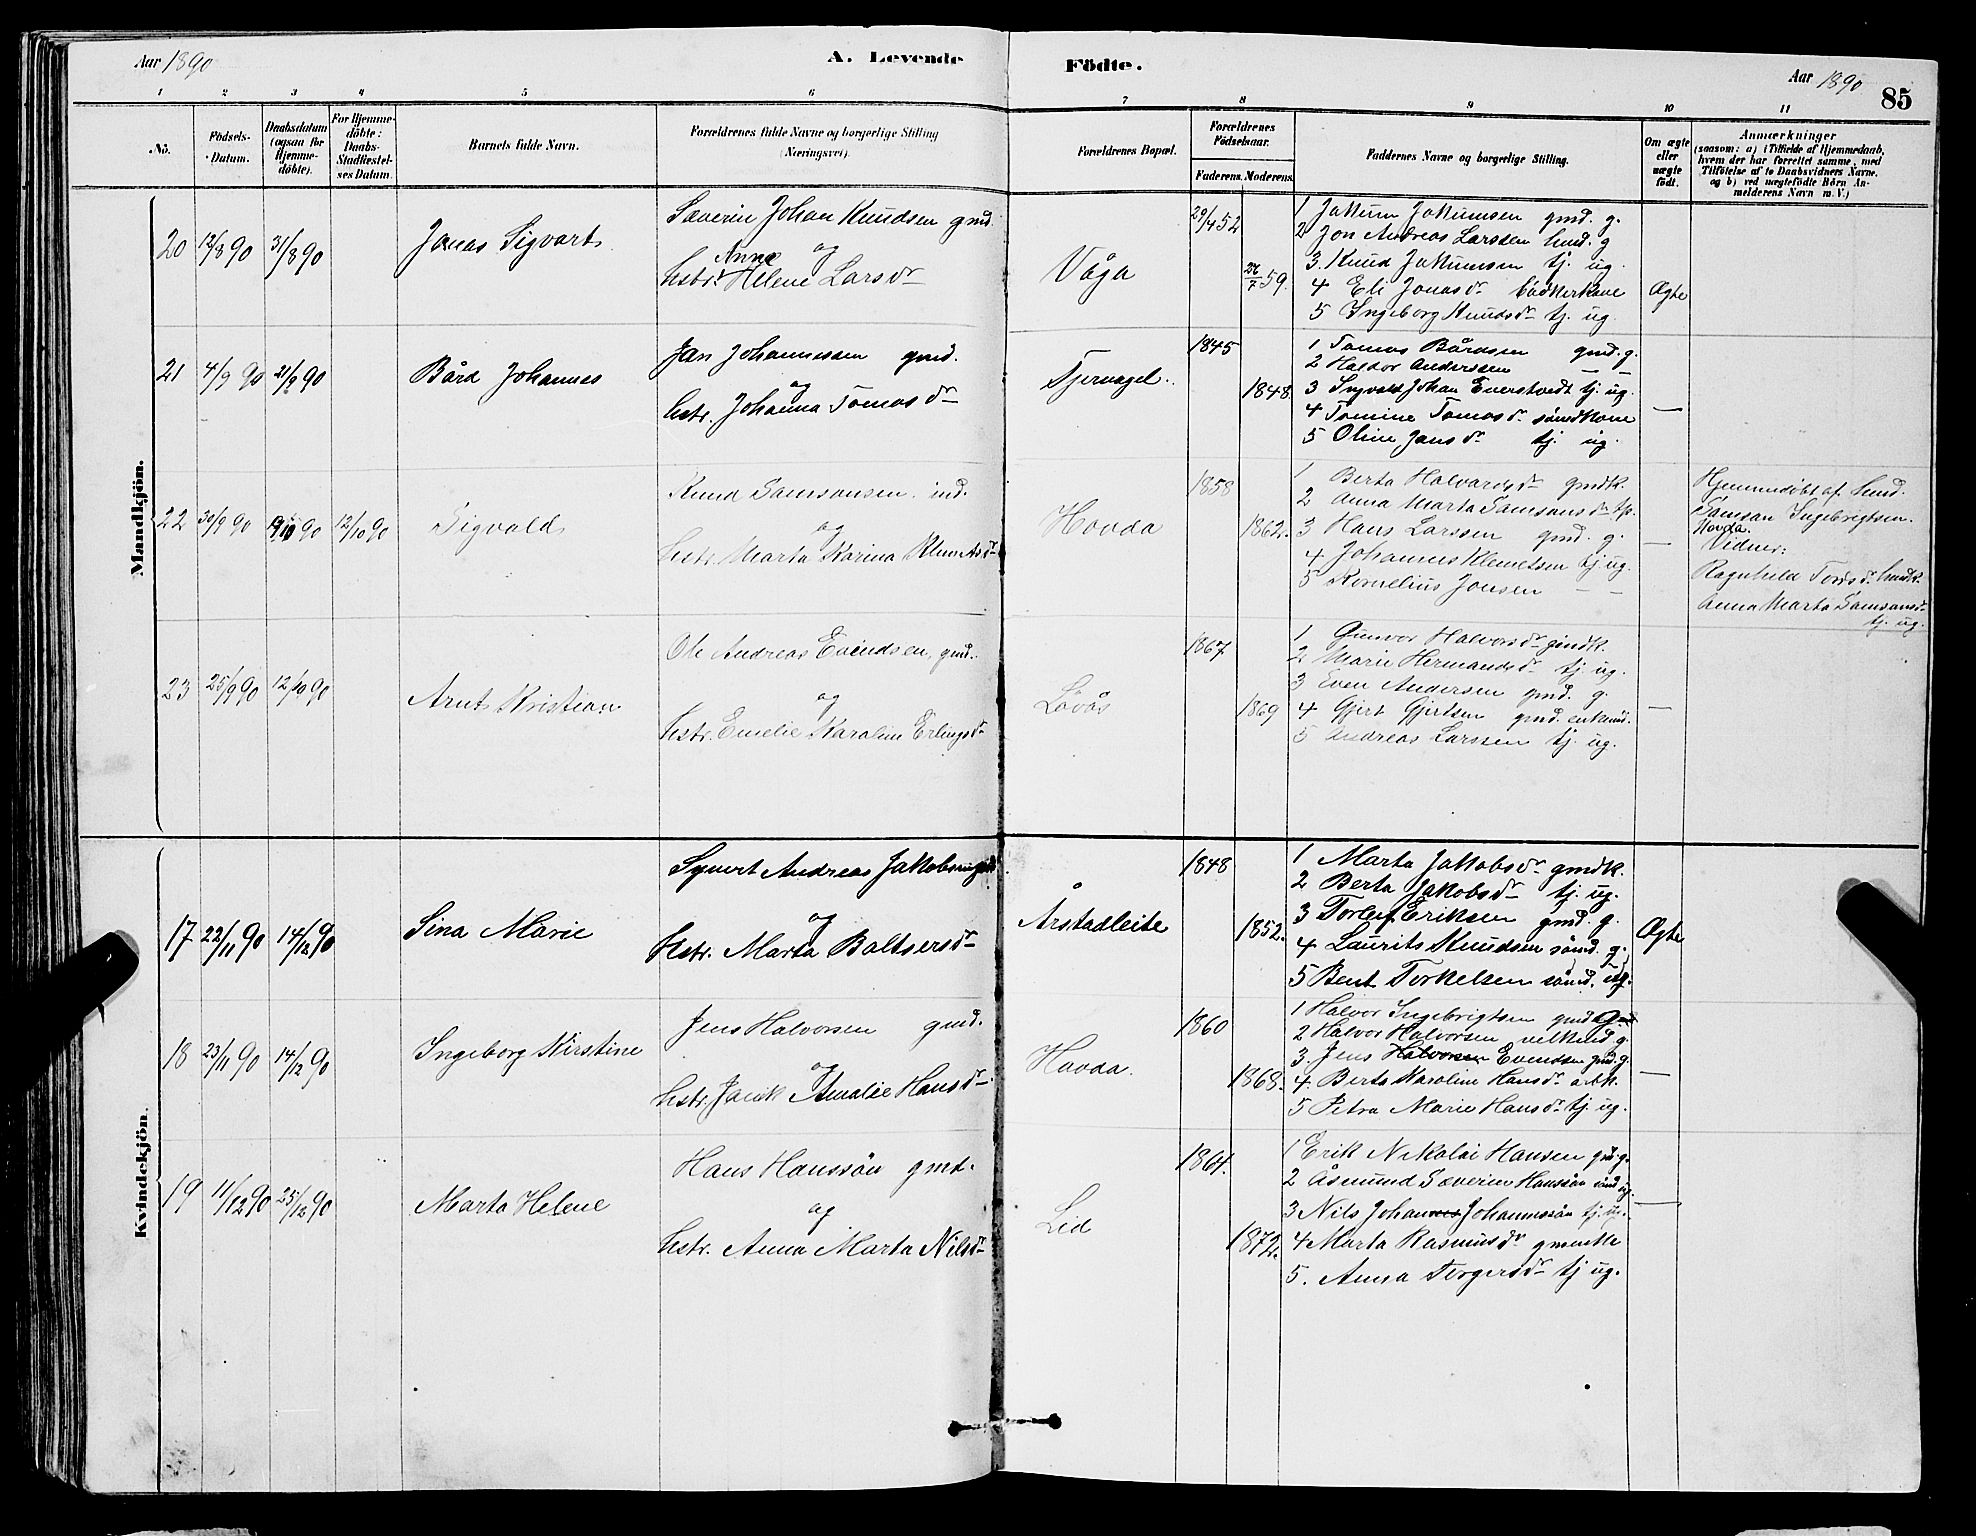 Aar 1890
A. Levende
Födte.
Aar 1890
85
1 2 3 4 5 6 7 8 9 10 11
No.
Födsels-Datum.
Daabsdatum (ogsaa for Hjemme-döbte).
For Hjemme-döbte: Daabs-Stadfæstel-ses Datum.
Barnets fulde Navn.
Forældrenes fulde Navne og borgerlige Stilling (Næringsvei).
Forældrenes Bopæl.
Forældrenes Födselsaar.
Faderens. Moderens.
Faddernes Navne og borgerlige Stilling.
Om ægte eller uægte födt.
Anmærkninger
(saasom: a) i Tilfælde af Hjemmedaab, hvem der har forrettet samme, med Tilföielse af to Daabsvidners Navne, og b) ved uægtefödte Börn Anmelderens Navn m. V.)
Mandkjön.
20 12/8 90 31/8 90
Jonas Sigvart
Severin Johan Knudsen gmd.
og
hstr. Anna Helene Larsdr
Våga
29/4 52
26/7 59.
1 Jakum Jakumsen gmd. g.
2 Jon Andreas Larssen hmd. g
3. Knud Jakumsen tj. ug.
4 Eli Jonasdr bødkerkone
5 Ingeborg Knudsdr tj. ug.
Ægte
21 4/9 90 21/9 90
Bård Johannes
Jan Johannessen gmd.
og
hstr. Johanna Tomasdr
Tjernagel.
1845
1848.
1 Tomas Bårdsen gmd. g.
2 Haldor Anderssen — —
3 Sigvald Johan Everstvedt tj. ug.
4 Tomine Tomasdr sømdkone
5 Oline Jansdr tj. ug.
—
22 30/9 90 12/10 90
Sigvald
Knud Samsonsen ind.
og
hstr. Marta Karina Klemetsdr
Hovda
1858
1862.
1 Berta Halvardsdr gmdk.
2 Anna Marta Samsonsdr tp.
3 Hans Larssen gmd. g.
4 Johannes Klemetsen tj ug.
5 Kornelius Jonsen — —
—
Hjemmedøbt af hmd.
Samson Ingebrigtsen.
Hovda.
Vidner:
Ragnhild Tordsdr hmdk.
Anna Marta Samsonsdr
tj. ug.
23 25/9 90 12/10 90
Arnt Kristian
Ole Andreas Evendsen, gmd.
og
hstr. Emelie Karoline Erlingsdr
Løvås
1867
1869
1 Gunvor Halvorsdr gmdk.
2 Marie Hermandsdr tj. ug.
3 Even Andersen gmd. g.
4 Gjert Gjertsen gmd. enkmd.
5 Andreas Larssen tj. ug.
—
Kvindekjön.
17 22/11 90 14/12 90
Sina Marie
Syvert Andreas Jakobsen gmd
og
hstr. Marta Baltsersdr
Årstadleite
1848
1852.
1 Marta Jakobsdr gmdk.
2 Berta Jakobsdr tj. ug.
3 Torlef Eriksen gmd. g.
4 Laurits Knudsen sømd. g.
5 Bent Torkelsen sømd. ug.
Ægte
18 23/11 90 14/12 90
Ingeborg Kirstine
Jens Halvorsen gmd.
og
hstr. Janik Amalie Hansdr
Hovda.
1860
1868.
1 Halvor Ingebrigtsen gmd
2 Halvor Halvorsen g.
3. Jens Halvorsen Evendsen gmd. g.
4. Berta Karoline Hansdr arbk.
5 Petra Marie Hansdr tj. ug.
—
19 11/12 90 25/12 90
Marta Helene
Hans Hanssøn gmd.
og
hstr. Anna Marta Nilsdr
Lid
1864.
1872.
1 Erik Nikolai Hansen gm g.
2 Åsmund Severin Hanssøn sømd ug.
3 Nils Johannes Johannessøn tj. ug.
4 Marta Rasmusdr
5. Anna Torgersdr tj ug.
—